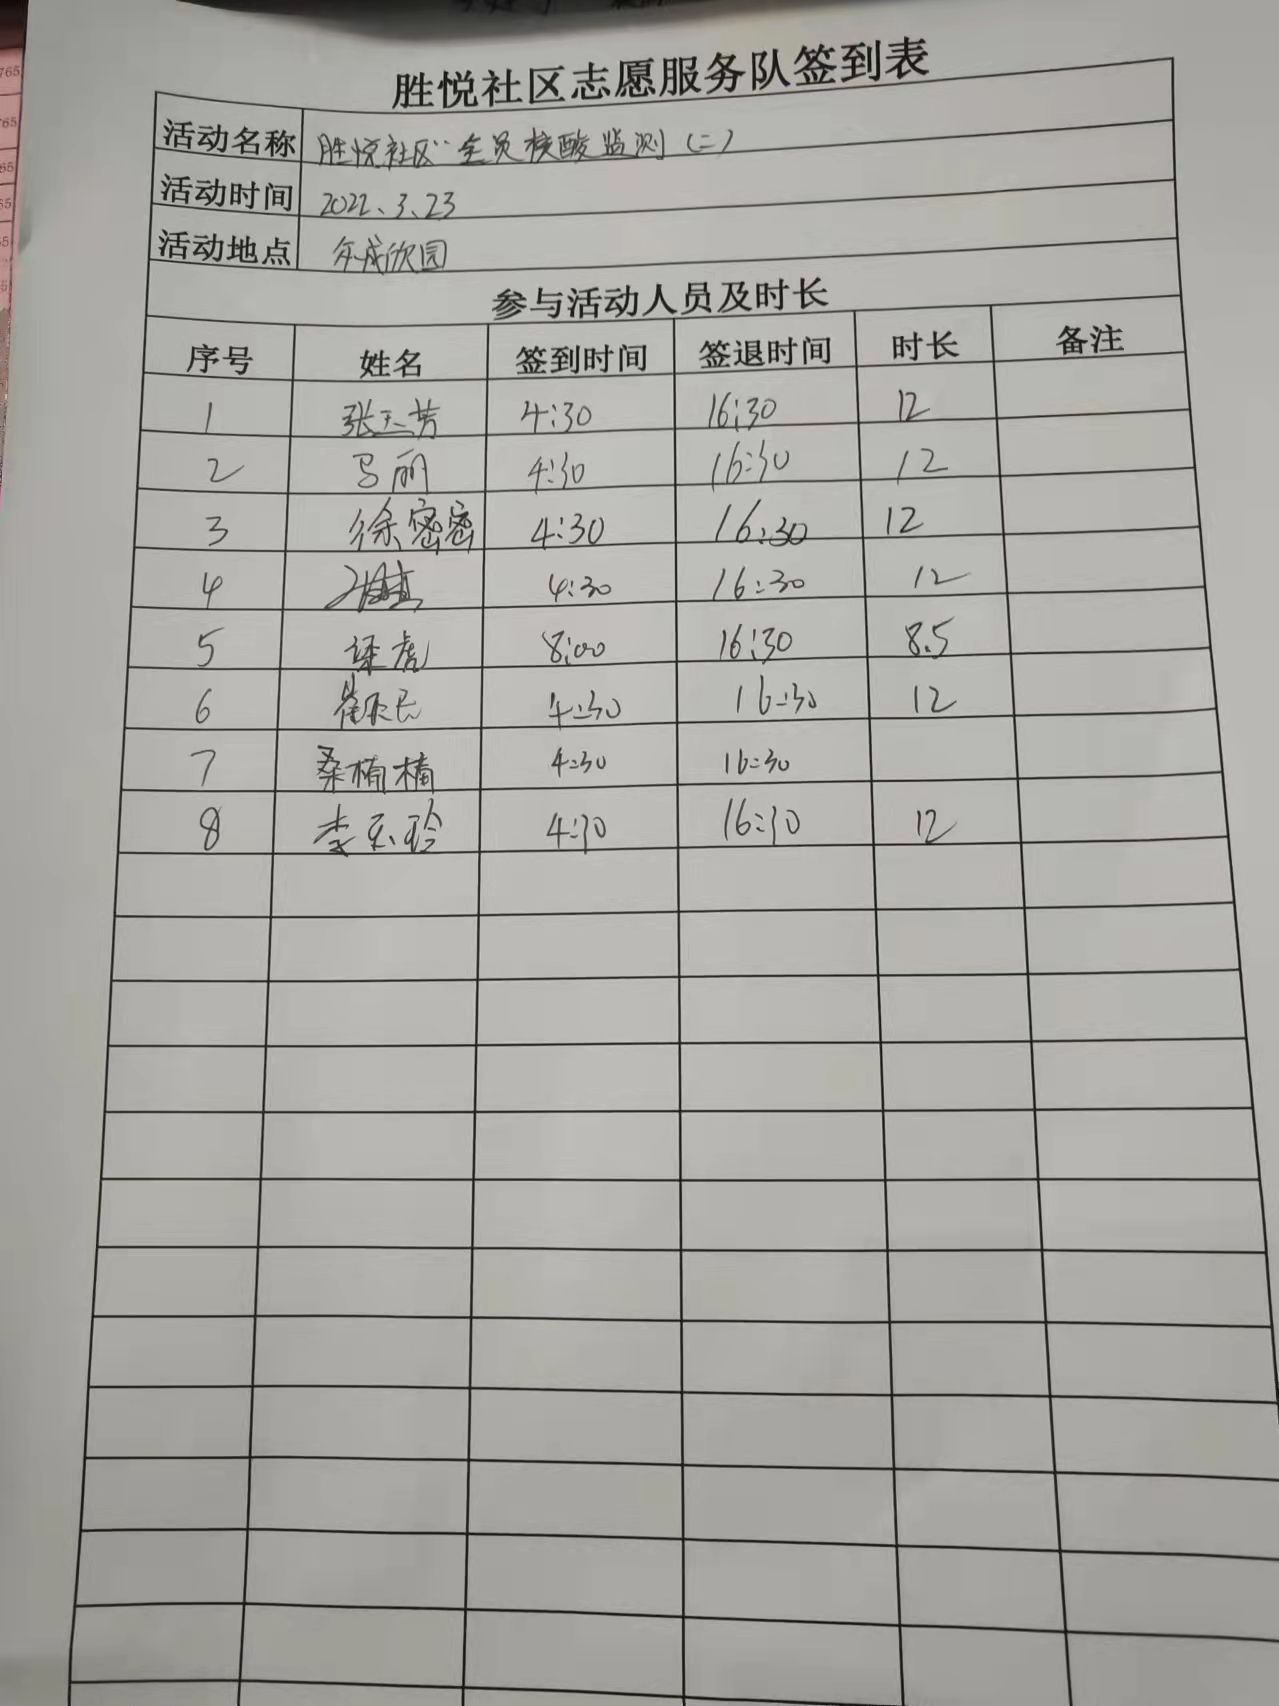 胜悦社区志愿服务队签到表
活动名称 胜悦社区"全员核酸监测(二)
活动时间 2022、3、23
活动地点 年成欣园
参与活动人员及时长
序号 姓名 签到时间 签退时间 时长 备注
1 张玉芳 4:30 16:30 12
2 马丽 4:30 16:30 12
3 徐密密 4:30 16:30 12
4 4:30 16:30 12
5 梁虎 8:00 16:30 8.5
6 崔 4:30 16:30 12
7 桑楠楠 4:30 16:30
8 李玉玲 4:30 16:30 12
765
765